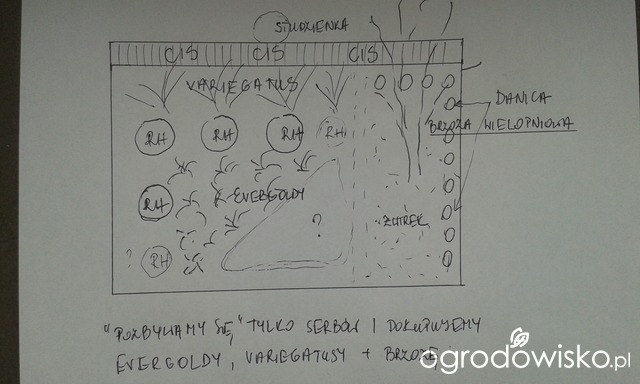 STUDZIENKA
CIS CIS CIS
VARIEGATUS
DANICA
BRZOZA WIELOPNIOWA
RH RH RH RH
RH EVERGOLDY
? ŻWIREK
? RH
"POZBYWAMY SIĘ" TYLKO SERBÓW I DOKUPUJEMY
EVERGOLDY, VARIEGATUSY + BRZOZĘ
ogrodowisko.pl